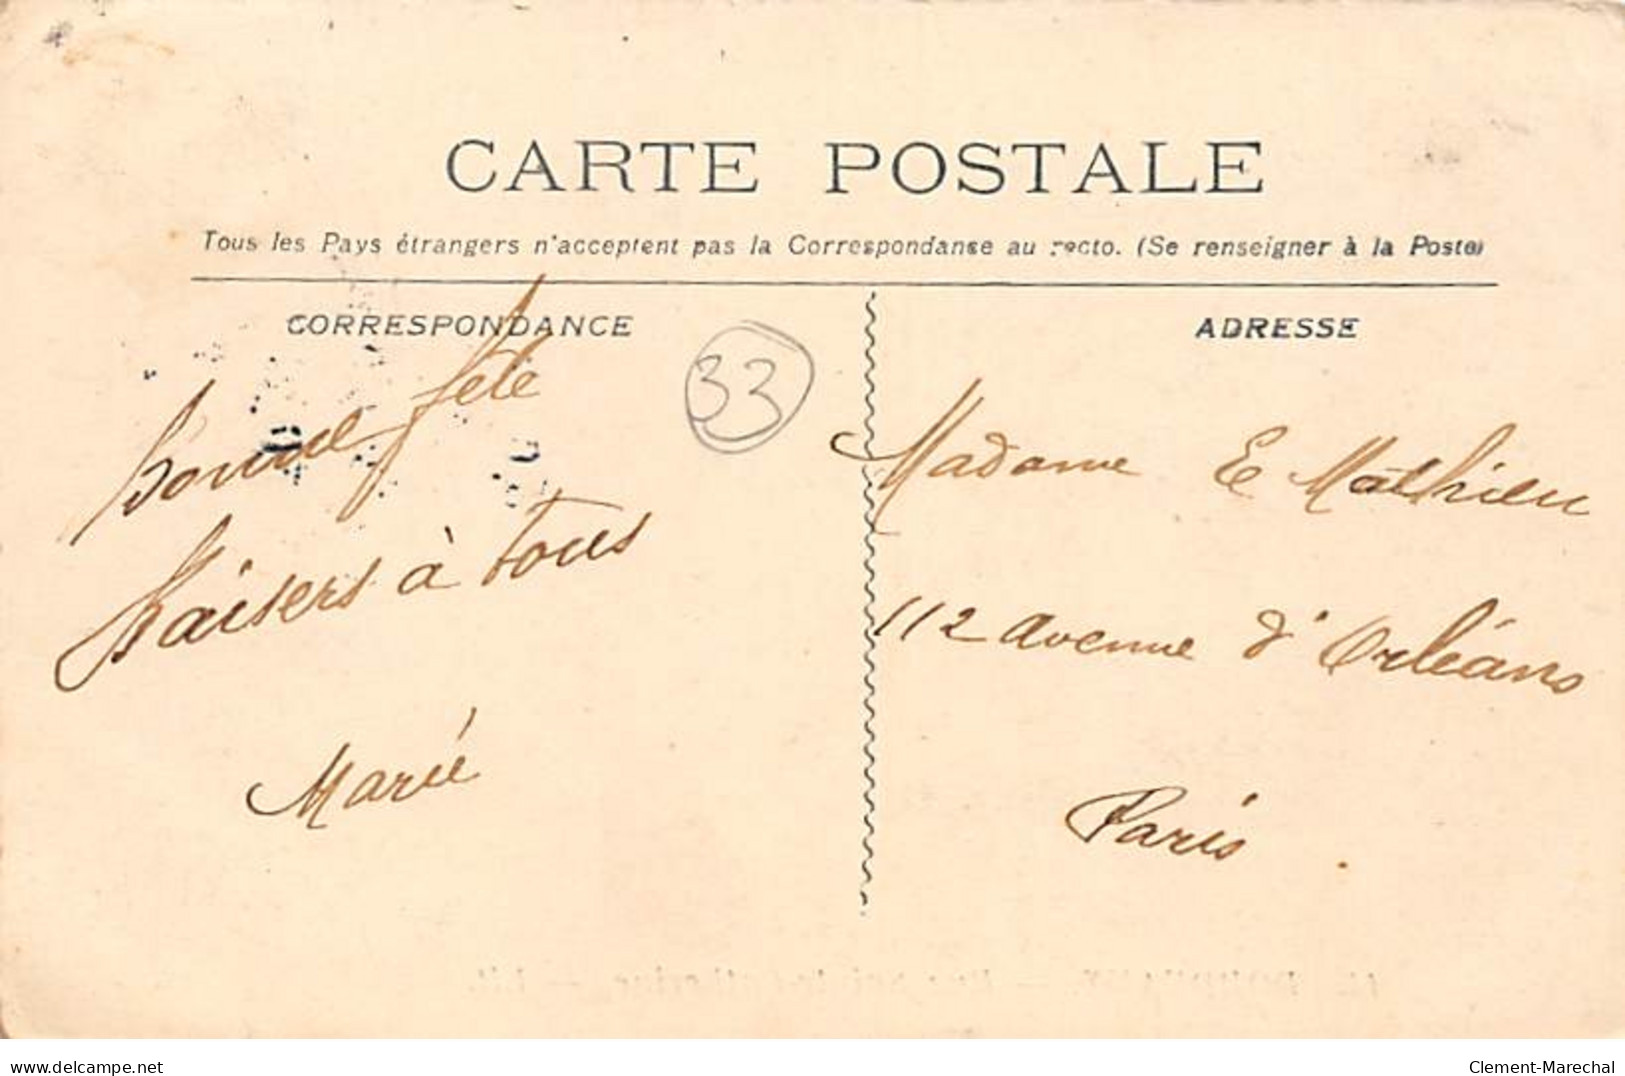 CARTE POSTALE
Tous les Pays étrangers n'acceptent pas la Correspondanse au recto. (Se renseigner à la Poste)
CORRESPONDANCE
33
bonne fête
baisers à tous
Marie
ADRESSE
Madame E Mathieu
112 avenue d'Orléans
Paris
delcampe.net
Clement-Marechal